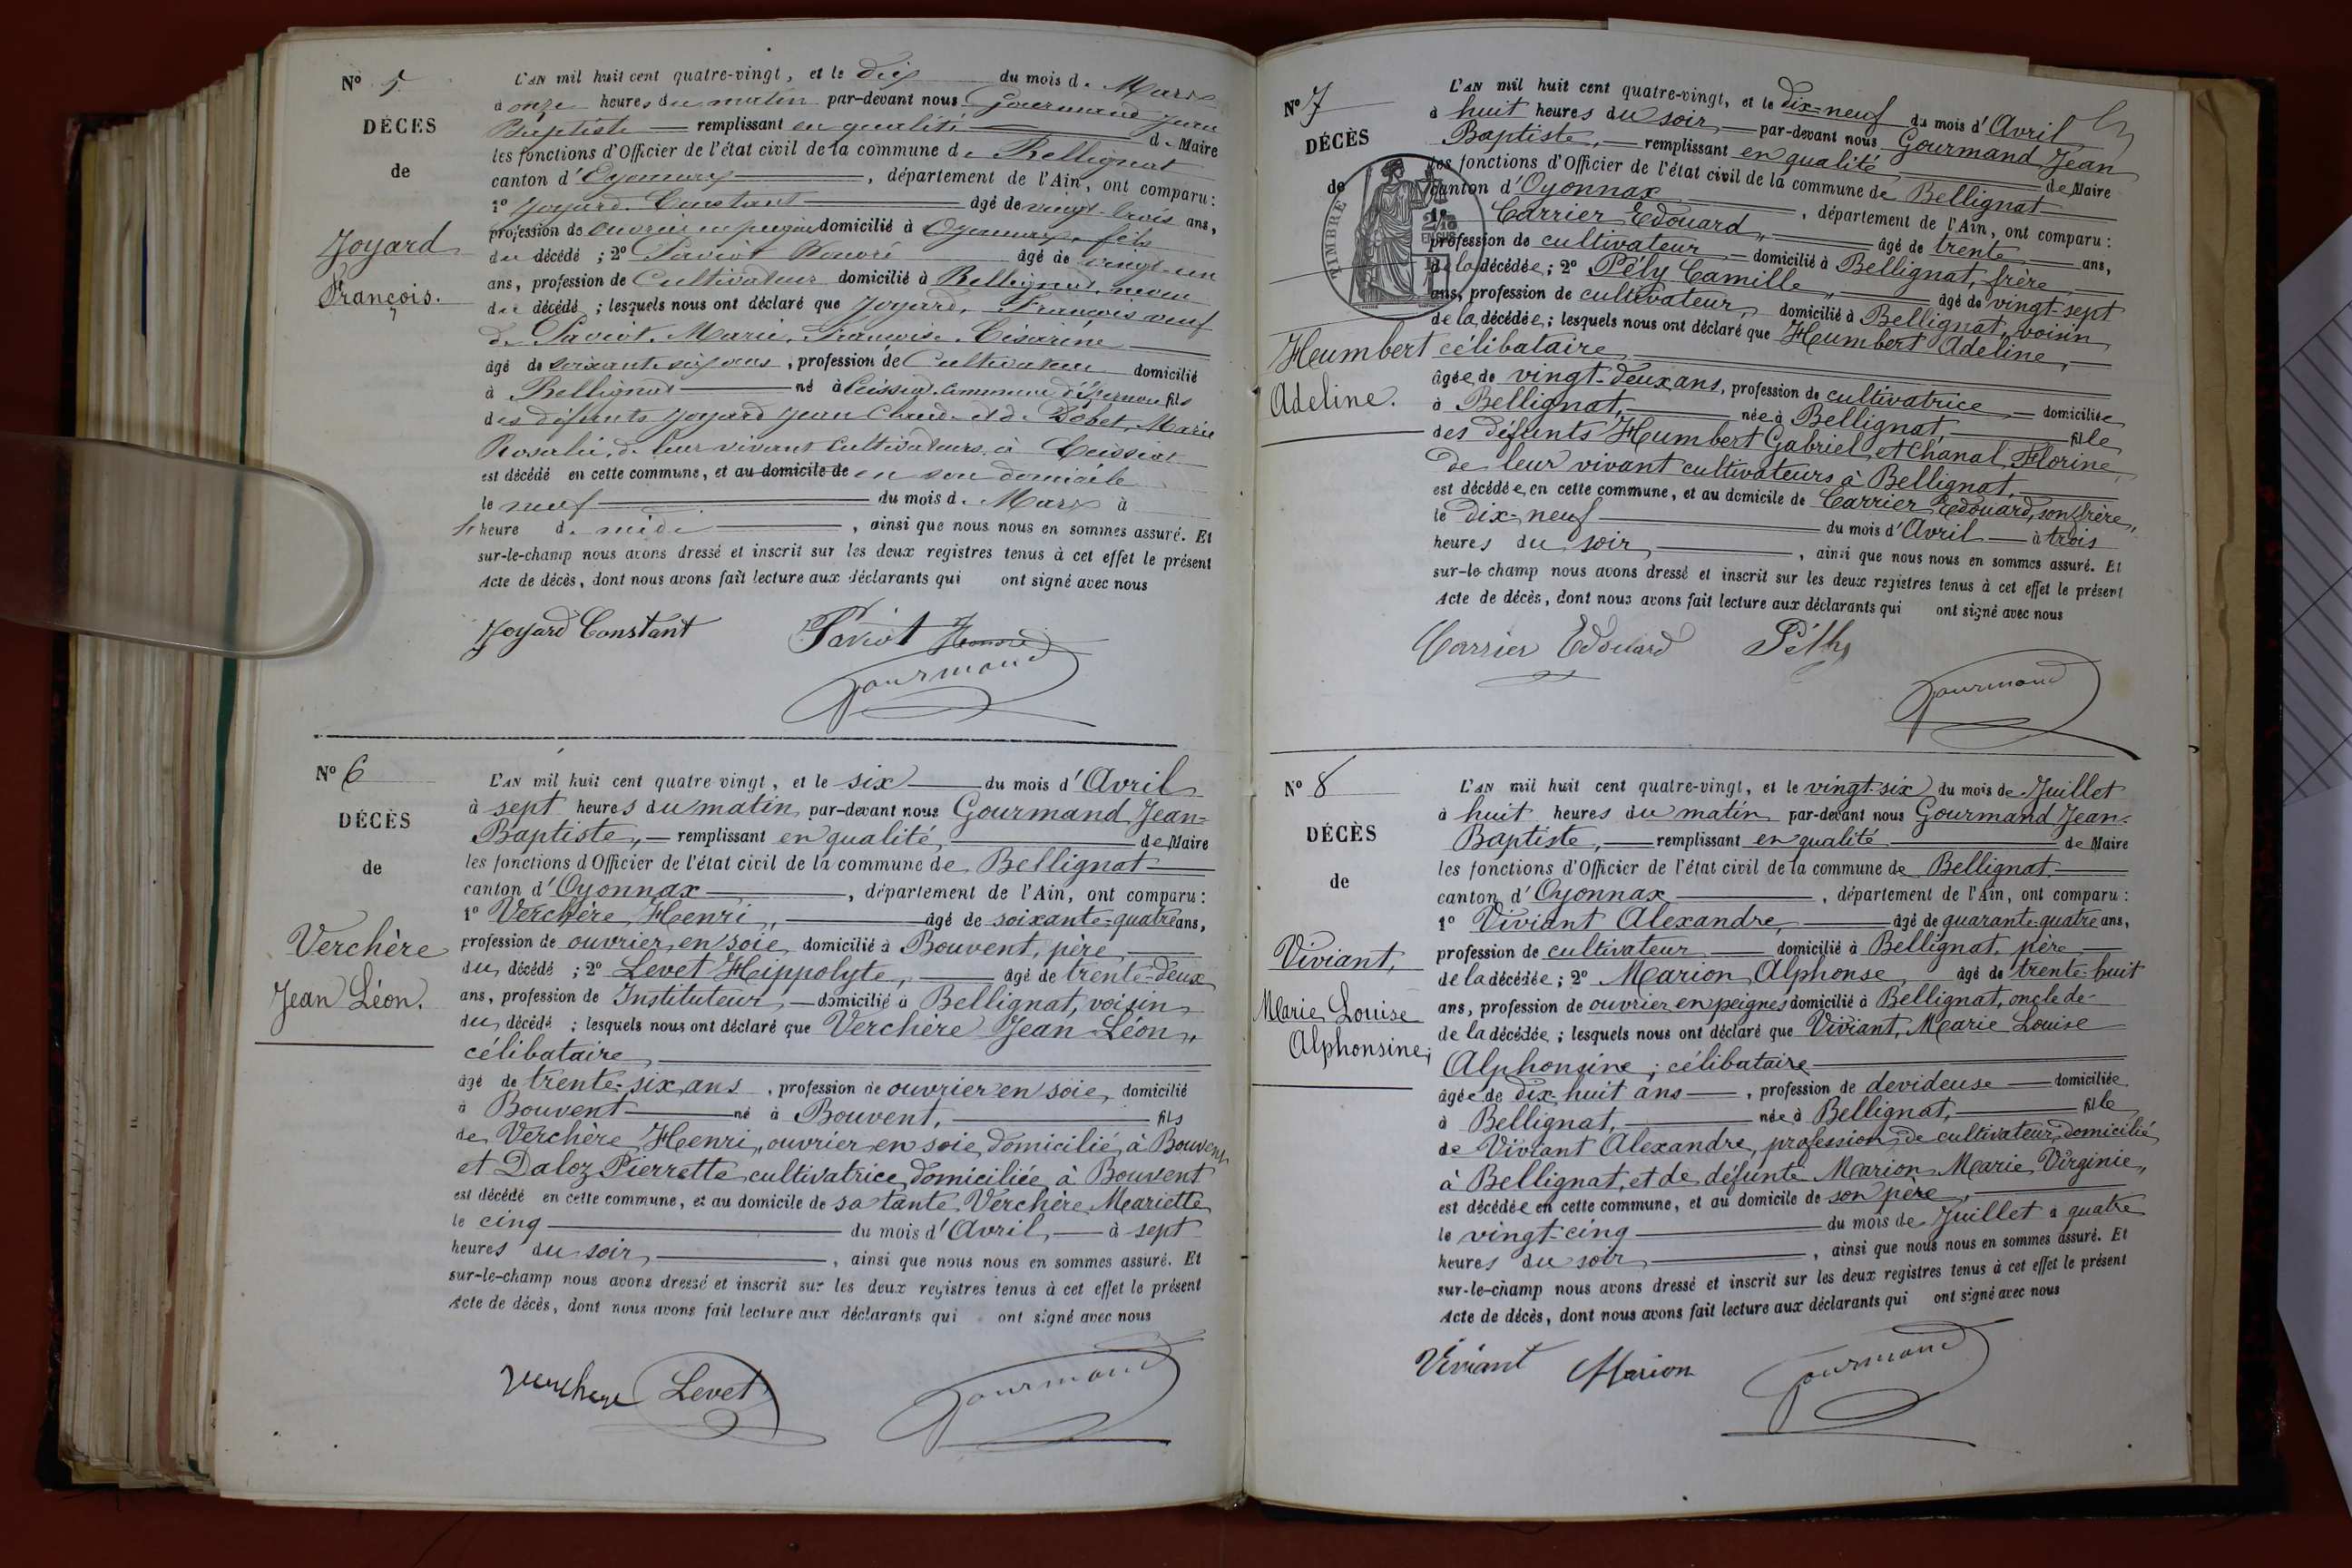 N° 5
DÉCES
de
Joyard
François.
L'AN mil huit cent quatre-vingt, et le dix du mois de Mars
à onze heures du matin par-devant nous Gourmand Jean
Baptiste remplissant en qualité de Maire
les fonctions d'Officier de l'état civil de la commune de Bellignat
canton d'Oyonnax, département de l'Ain, ont comparu:
1° Joyard Constant âgé de vingt-trois ans,
profession de ouvrier en peignes domicilié à Oyonnax, fils
du décédé ; 2° Paviot Honoré âgé de vingt-un
ans, profession de Cultivateur domicilié à Bellignat, neveu
du décédé ; lesquels nous ont déclaré que Joyard, François veuf
de Paviot, Marie, Françoise, Césarine
âgé de soixante six ans, profession de Cultivateur domicilié
à Bellignat né à Ceissiat commune d' fils
des défunts Joyard Jean Claude et de Bobet, Marie
Rosalie, de leur vivant cultivateurs à Ceissiat
est décédé en cette commune, et au domicile de en son domicile
le neuf du mois de Mars à
heure de midi, ainsi que nous nous en sommes assuré. Et
sur-le-champ nous avons dressé et inscrit sur les deux registres tenus à cet effet le présent
Acte de décès, dont nous avons fait lecture aux déclarants qui ont signé avec nous
Joyard Constant Paviot Honoré
Gourmand
N° 6
DÉCÈS
de
Verchère
Jean Léon.
L'AN mil huit cent quatre vingt, et le six du mois d'Avril
à sept heures du matin par-devant nous Gourmand Jean-
Baptiste, remplissant en qualité, de Maire
les fonctions d'Officier de l'état civil de la commune de Bellignat
canton d'Oyonnax, département de l'Ain, ont comparu:
1° Verchère Henri, âgé de soixante-quatre ans,
profession de ouvrier en soie domicilié à Bouvent, père
du décédé ; 2° Levet Hippolyte, âgé de trente-deux
ans, profession de Instituteur, domicilié à Bellignat, voisin
du décédé ; lesquels nous ont déclaré que Verchère Jean Léon,
célibataire
âgé de trente-six ans, profession de ouvrier en soie, domicilié
à Bouvent né à Bouvent, fils
de Verchère Henri, ouvrier en soie, domicilié à Bouvent
et Daloz Pierrette cultivatrice domiciliée à Bouvent
est décédé en cette commune, et au domicile de sa tante Verchère Mariette
le cinq du mois d'Avril, à sept
heures du soir, ainsi que nous nous en sommes assuré. Et
sur-le-champ nous avons dressé et inscrit sur les deux registres tenus à cet effet le présent
Acte de décès, dont nous avons fait lecture aux déclarants qui ont signé avec nous
Verchere Levet Gourmand
N° 7
DÉCÈS
de
TIMBRE
2/10
EN SUS
Humbert
Adeline.
L'AN mil huit cent quatre-vingt, et le dix-neuf du mois d'Avril
à huit heures du soir par-devant nous Gourmand Jean
Baptiste, remplissant en qualité de Maire
les fonctions d'Officier de l'état civil de la commune de Bellignat
canton d'Oyonnax, département de l'Ain, ont comparu :
1° Carrier Edouard, âgé de trente ans,
profession de cultivateur domicilié à Bellignat, frère
de la décédée ; 2° Pély Camille, âgé de vingt-sept
ans, profession de cultivateur, domicilié à Bellignat, voisin
de la décédée ; lesquels nous ont déclaré que Humbert Adeline,
célibataire
âgée de vingt-deux ans, profession de cultivatrice domiciliée
à Bellignat, née à Bellignat, fille
des défunts Humbert Gabriel et Chanal Florine
de leur vivant cultivateurs à Bellignat,
est décédée en cette commune, et au domicile de Carrier Edouard, son frère,
le dix-neuf du mois d'Avril à trois
heures du soir, ainsi que nous nous en sommes assuré. Et
sur-le champ nous avons dressé et inscrit sur les deux registres tenus à cet effet le présent
Acte de décès, dont nous avons fait lecture aux déclarants qui ont signé avec nous
Carrier Edouard Pély
Gourmand
N° 8
DÉCÈS
de
Viviant,
Marie Louise
Alphonsine;
L'AN mil huit cent quatre-vingt, et le vingt-six du mois de Juillet
à huit heures du matin par-devant nous Gourmand Jean-
Baptiste, remplissant en qualité de Maire
les fonctions d'Officier de l'état civil de la commune de Bellignat
canton d'Oyonnax, département de l'Ain, ont comparu :
1° Viviant Alexandre, âgé de quarante-quatre ans,
profession de cultivateur domicilié à Bellignat, père
de la décédée ; 2° Marion Alphonse, âgé de trente-huit
ans, profession de ouvrier en peignes domicilié à Bellignat, oncle de
de la décédée ; lesquels nous ont déclaré que Viviant, Marie Louise
Alphonsine ; célibataire
âgée de dix huit ans, profession de devideuse domiciliée
à Bellignat, née à Bellignat, fille
de Viviant Alexandre, profession de cultivateur domicilié
à Bellignat, et de défunte Marion Marie Virginie,
est décédée en cette commune, et au domicile de son père,
le vingt-cinq du mois de Juillet à quatre
heures du soir, ainsi que nous nous en sommes assuré. Et
sur-le-champ nous avons dressé et inscrit sur les deux registres tenus à cet effet le présent
Acte de décès, dont nous avons fait lecture aux déclarants qui ont signé avec nous
Viviant Marion Gourmand